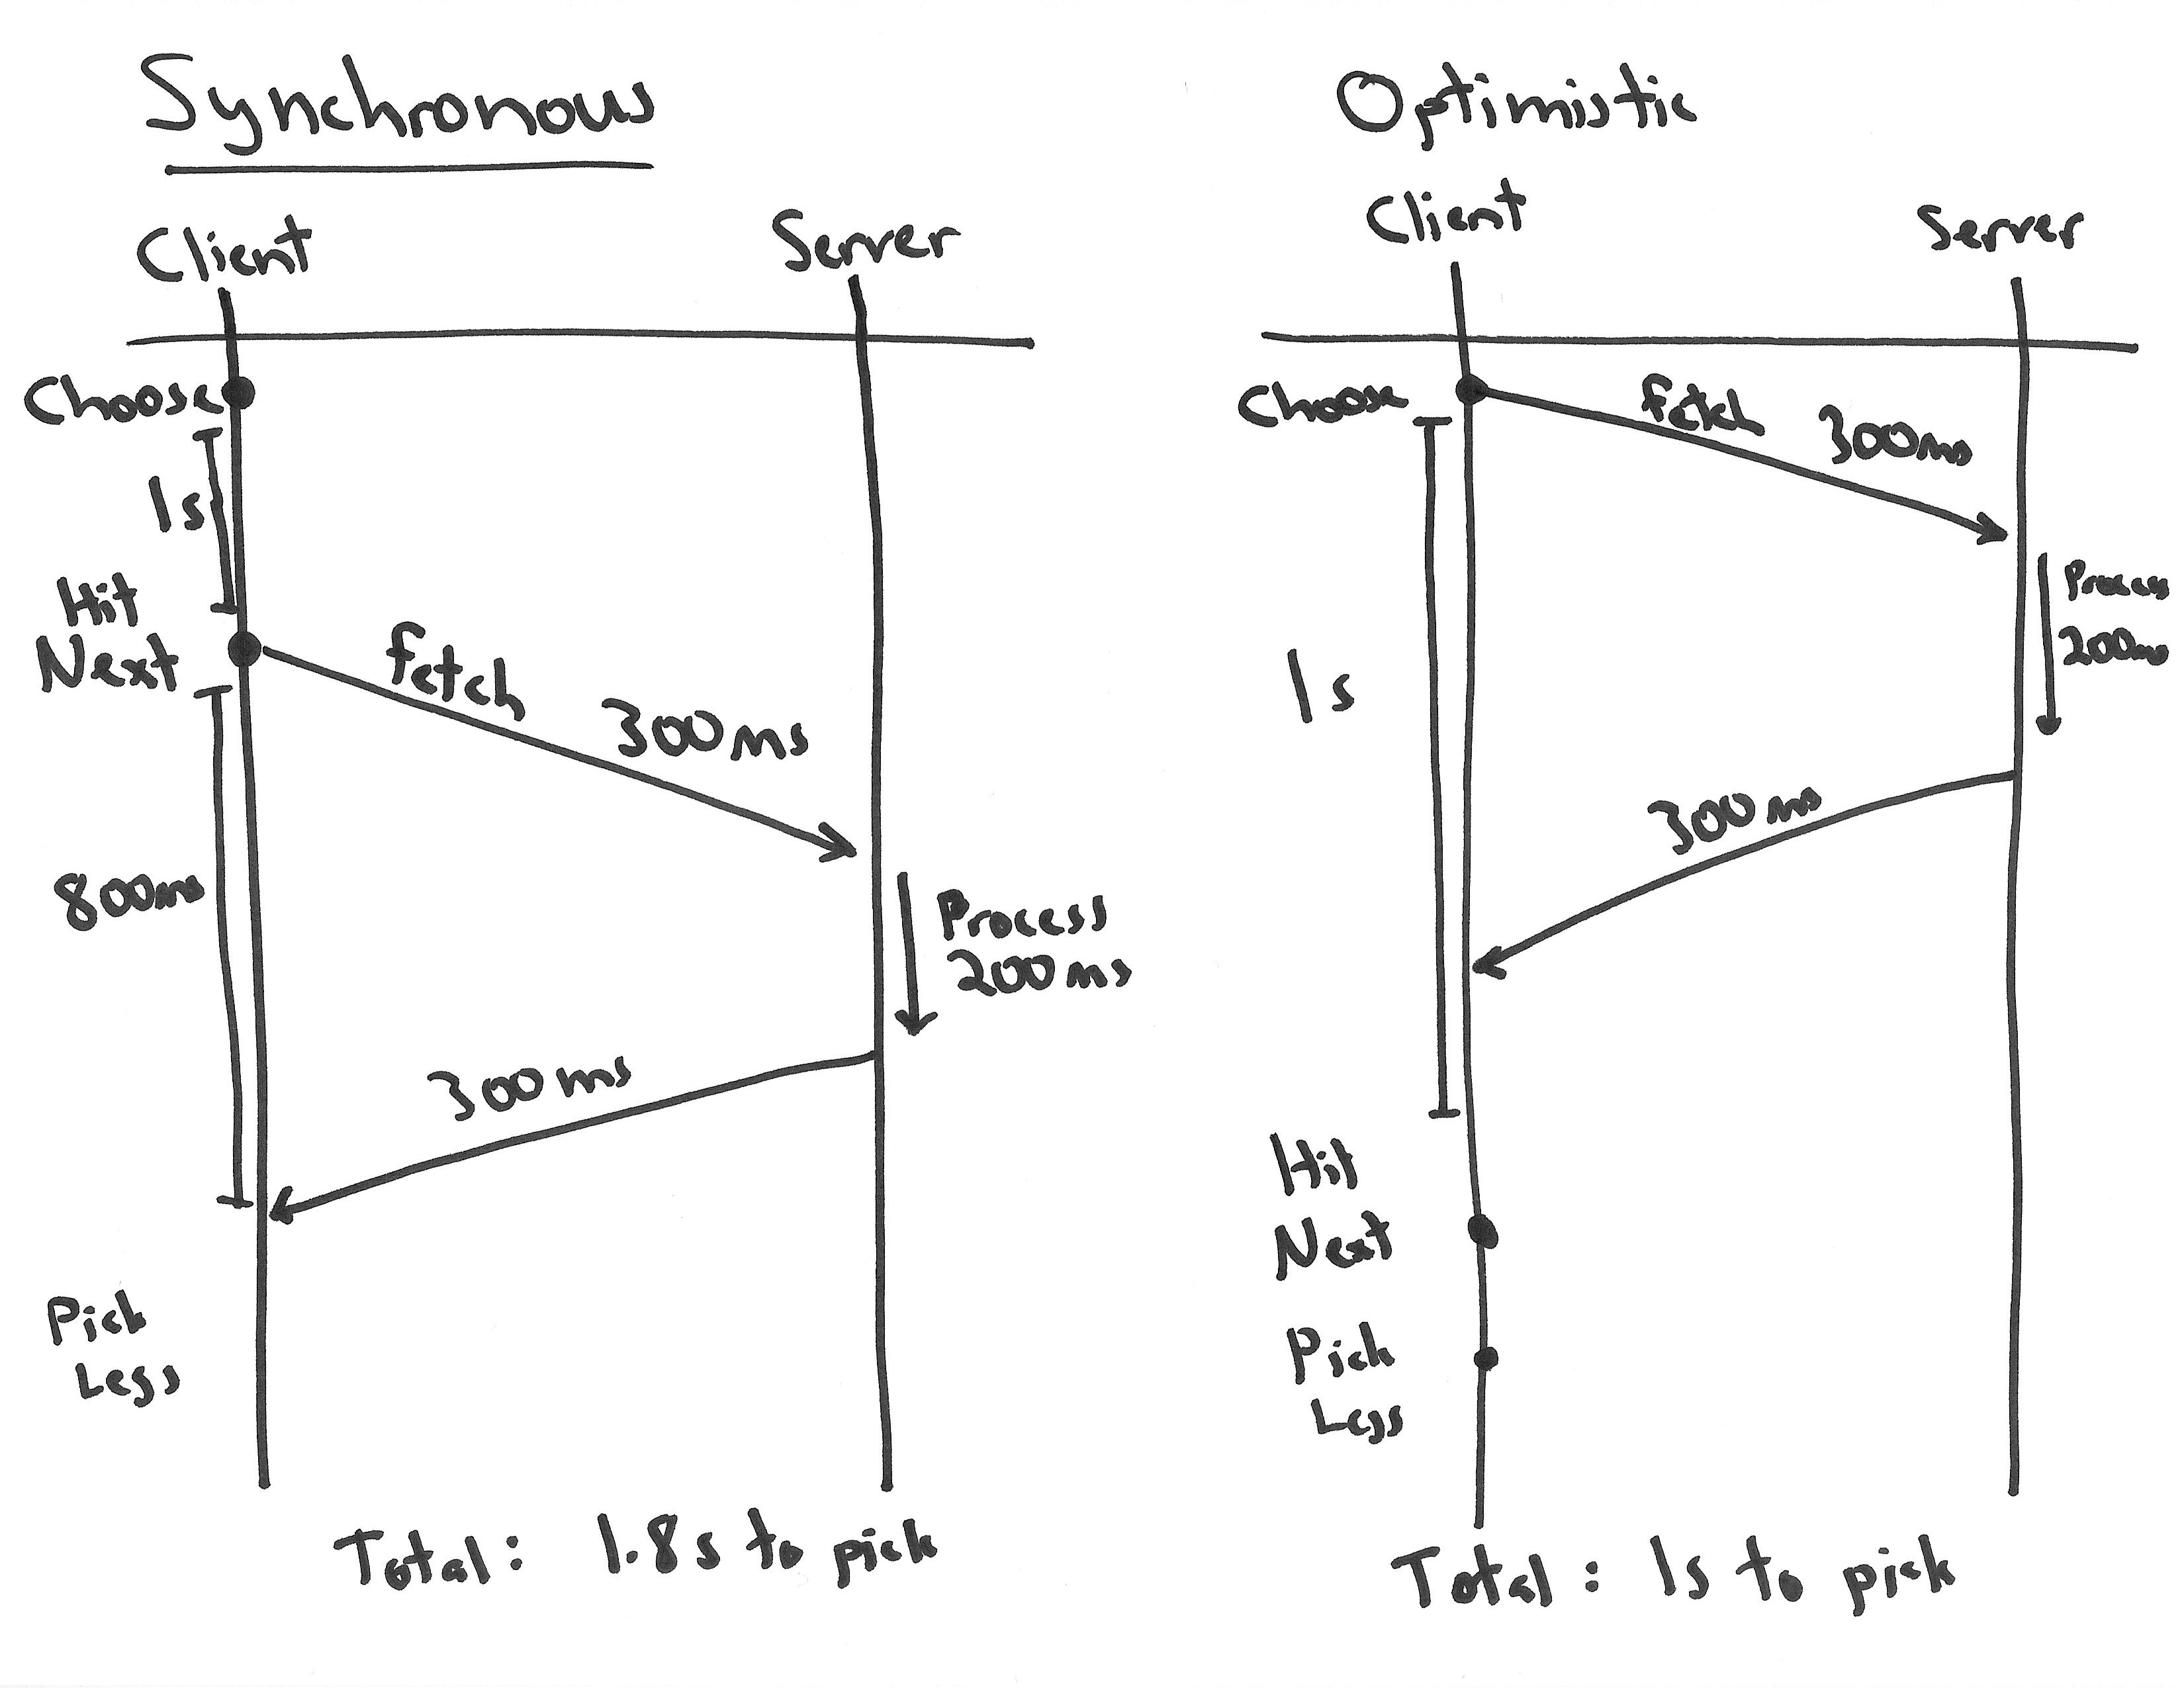 Synchronous
Client
Server
Choose
1s
Hit
Next
fetch
300ms
800ms
Process
200ms
300ms
Pick
Legs
Total: 1.8s to pick
Optimistic
Client
Server
Choose
fetch
300ms
Process
200ms
1s
300ms
Hit
Next
Pick
Legs
Total: 1s to pick